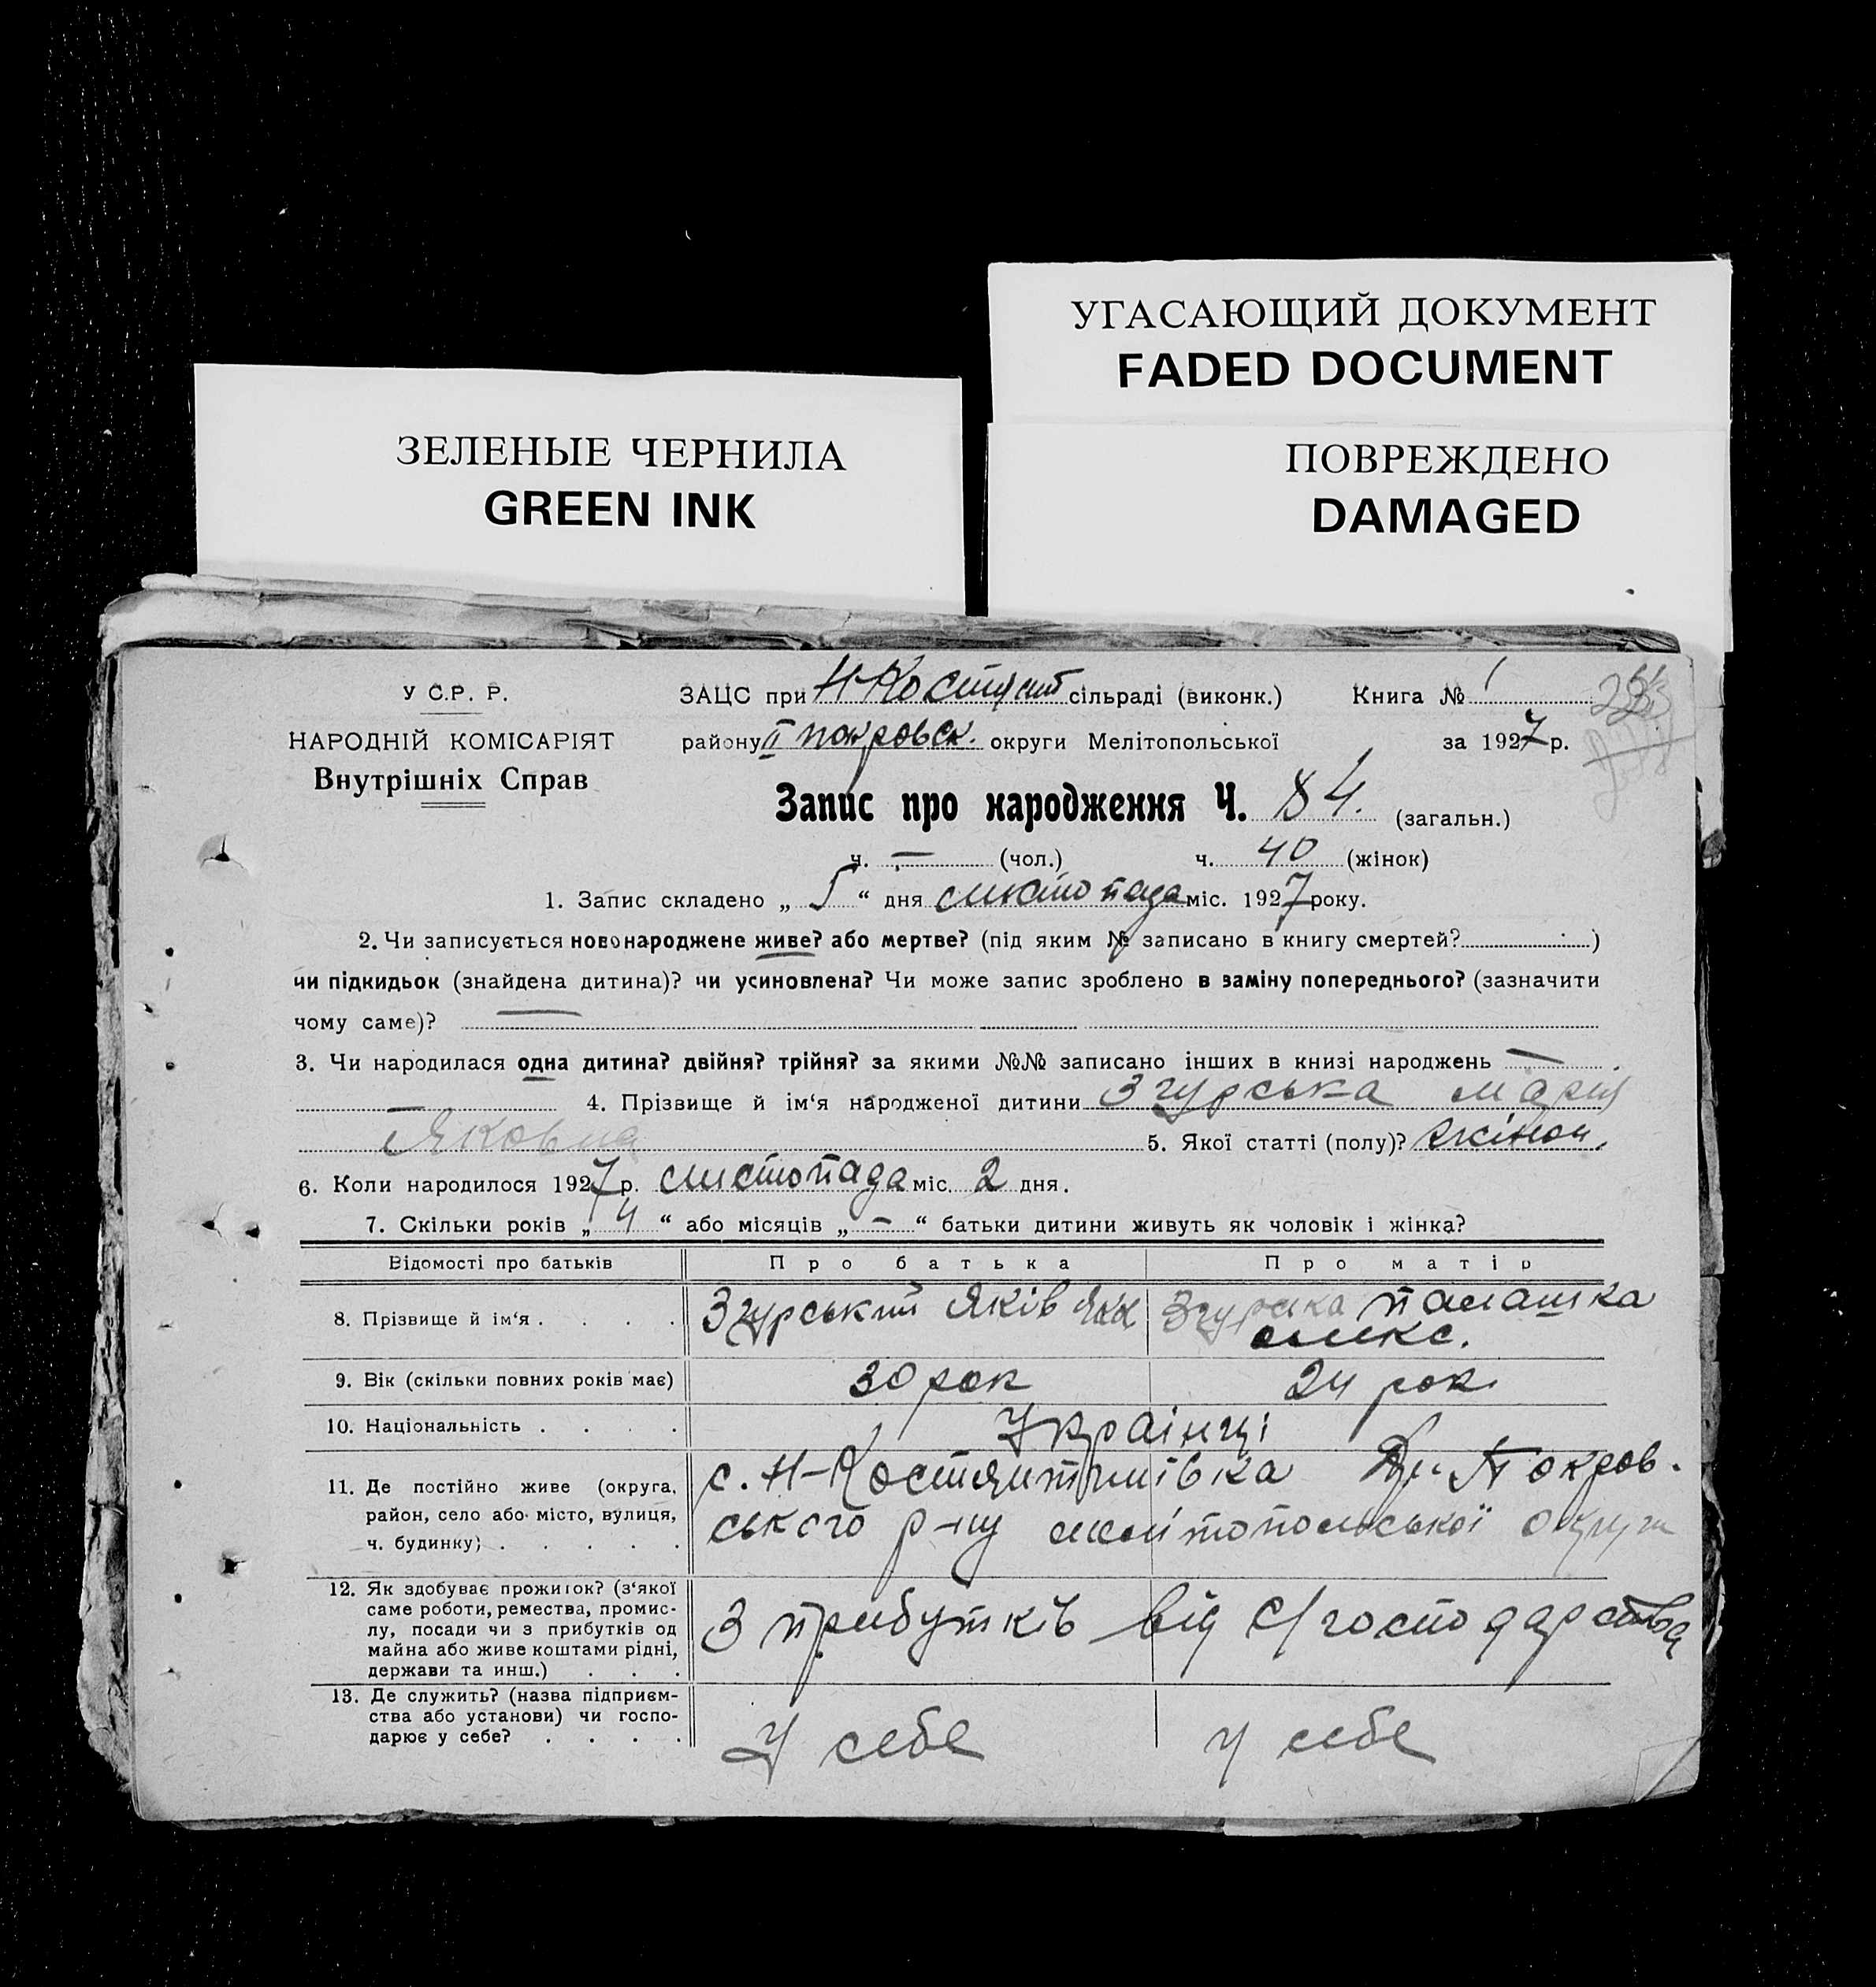 УГАСАЮЩИЙ ДОКУМЕНТ
FADED DOCUMENT
ЗЕЛЕНЫЕ ЧЕРНИЛА
GREEN INK
ПОВРЕЖДЕНО
DAMAGED
У С.Р. Р.
НАРОДНІЙ КОМІСАРІЯТ
Внутрішніх Справ
ЗАЦС при Н-Костянт сільраді (виконк.) Книга № 1
району II Покровськ. округи Мелітопольської за 1927 р.
Запис про народження Ч. 84. (загальн.)
ч. — (чол.) ч. 40 (жінок)
1. Запис складено „ 5 “ дня листопада міс. 1927 року.
2. Чи записується новонароджене живе? або мертве? (під яким № записано в книгу смертей? )
чи підкидьок (знайдена дитина)? чи усиновлена? Чи може запис зроблено в заміну попереднього? (зазначити
чому саме)? —
3. Чи народилася одна дитина? двійня? трійня? за якими №№ записано інших в книзі народжень —
— 4. Прізвище й ім‘я народженої дитини Згурська Марія
Яковна 5. Якої статті (полу)? жіноч.
6. Коли народилося 1927 р. листопада міс. 2 дня.
7. Скільки років „ 4 “ або місяців „ — “ батьки дитини живуть як чоловік і жінка?
Відомості про батьків Про батька Про матір
8. Прізвище й ім‘я . . . . Згурський Яків Як Згурська Палашка
Олекс.
9. Вік (скільки повних років має) 30 рок 24 рок
10. Національність . . . . Українці
11. Де постійно живе (округа, район, село або місто, вулиця, ч. будинку) . . . . . с. Н-Костянтинівка Др. Покров-
ського р-ну Мелітопольської округи
12. Як здобуває прожиток? (з‘якої саме роботи, ремества, промислу, посади чи з прибутків од майна або живе коштами рідні, держави та инш.) . . . З прибутків від с/господарства
13. Де служить? (назва підприємства або установи) чи господарює у себе? . . . . У себе У себе